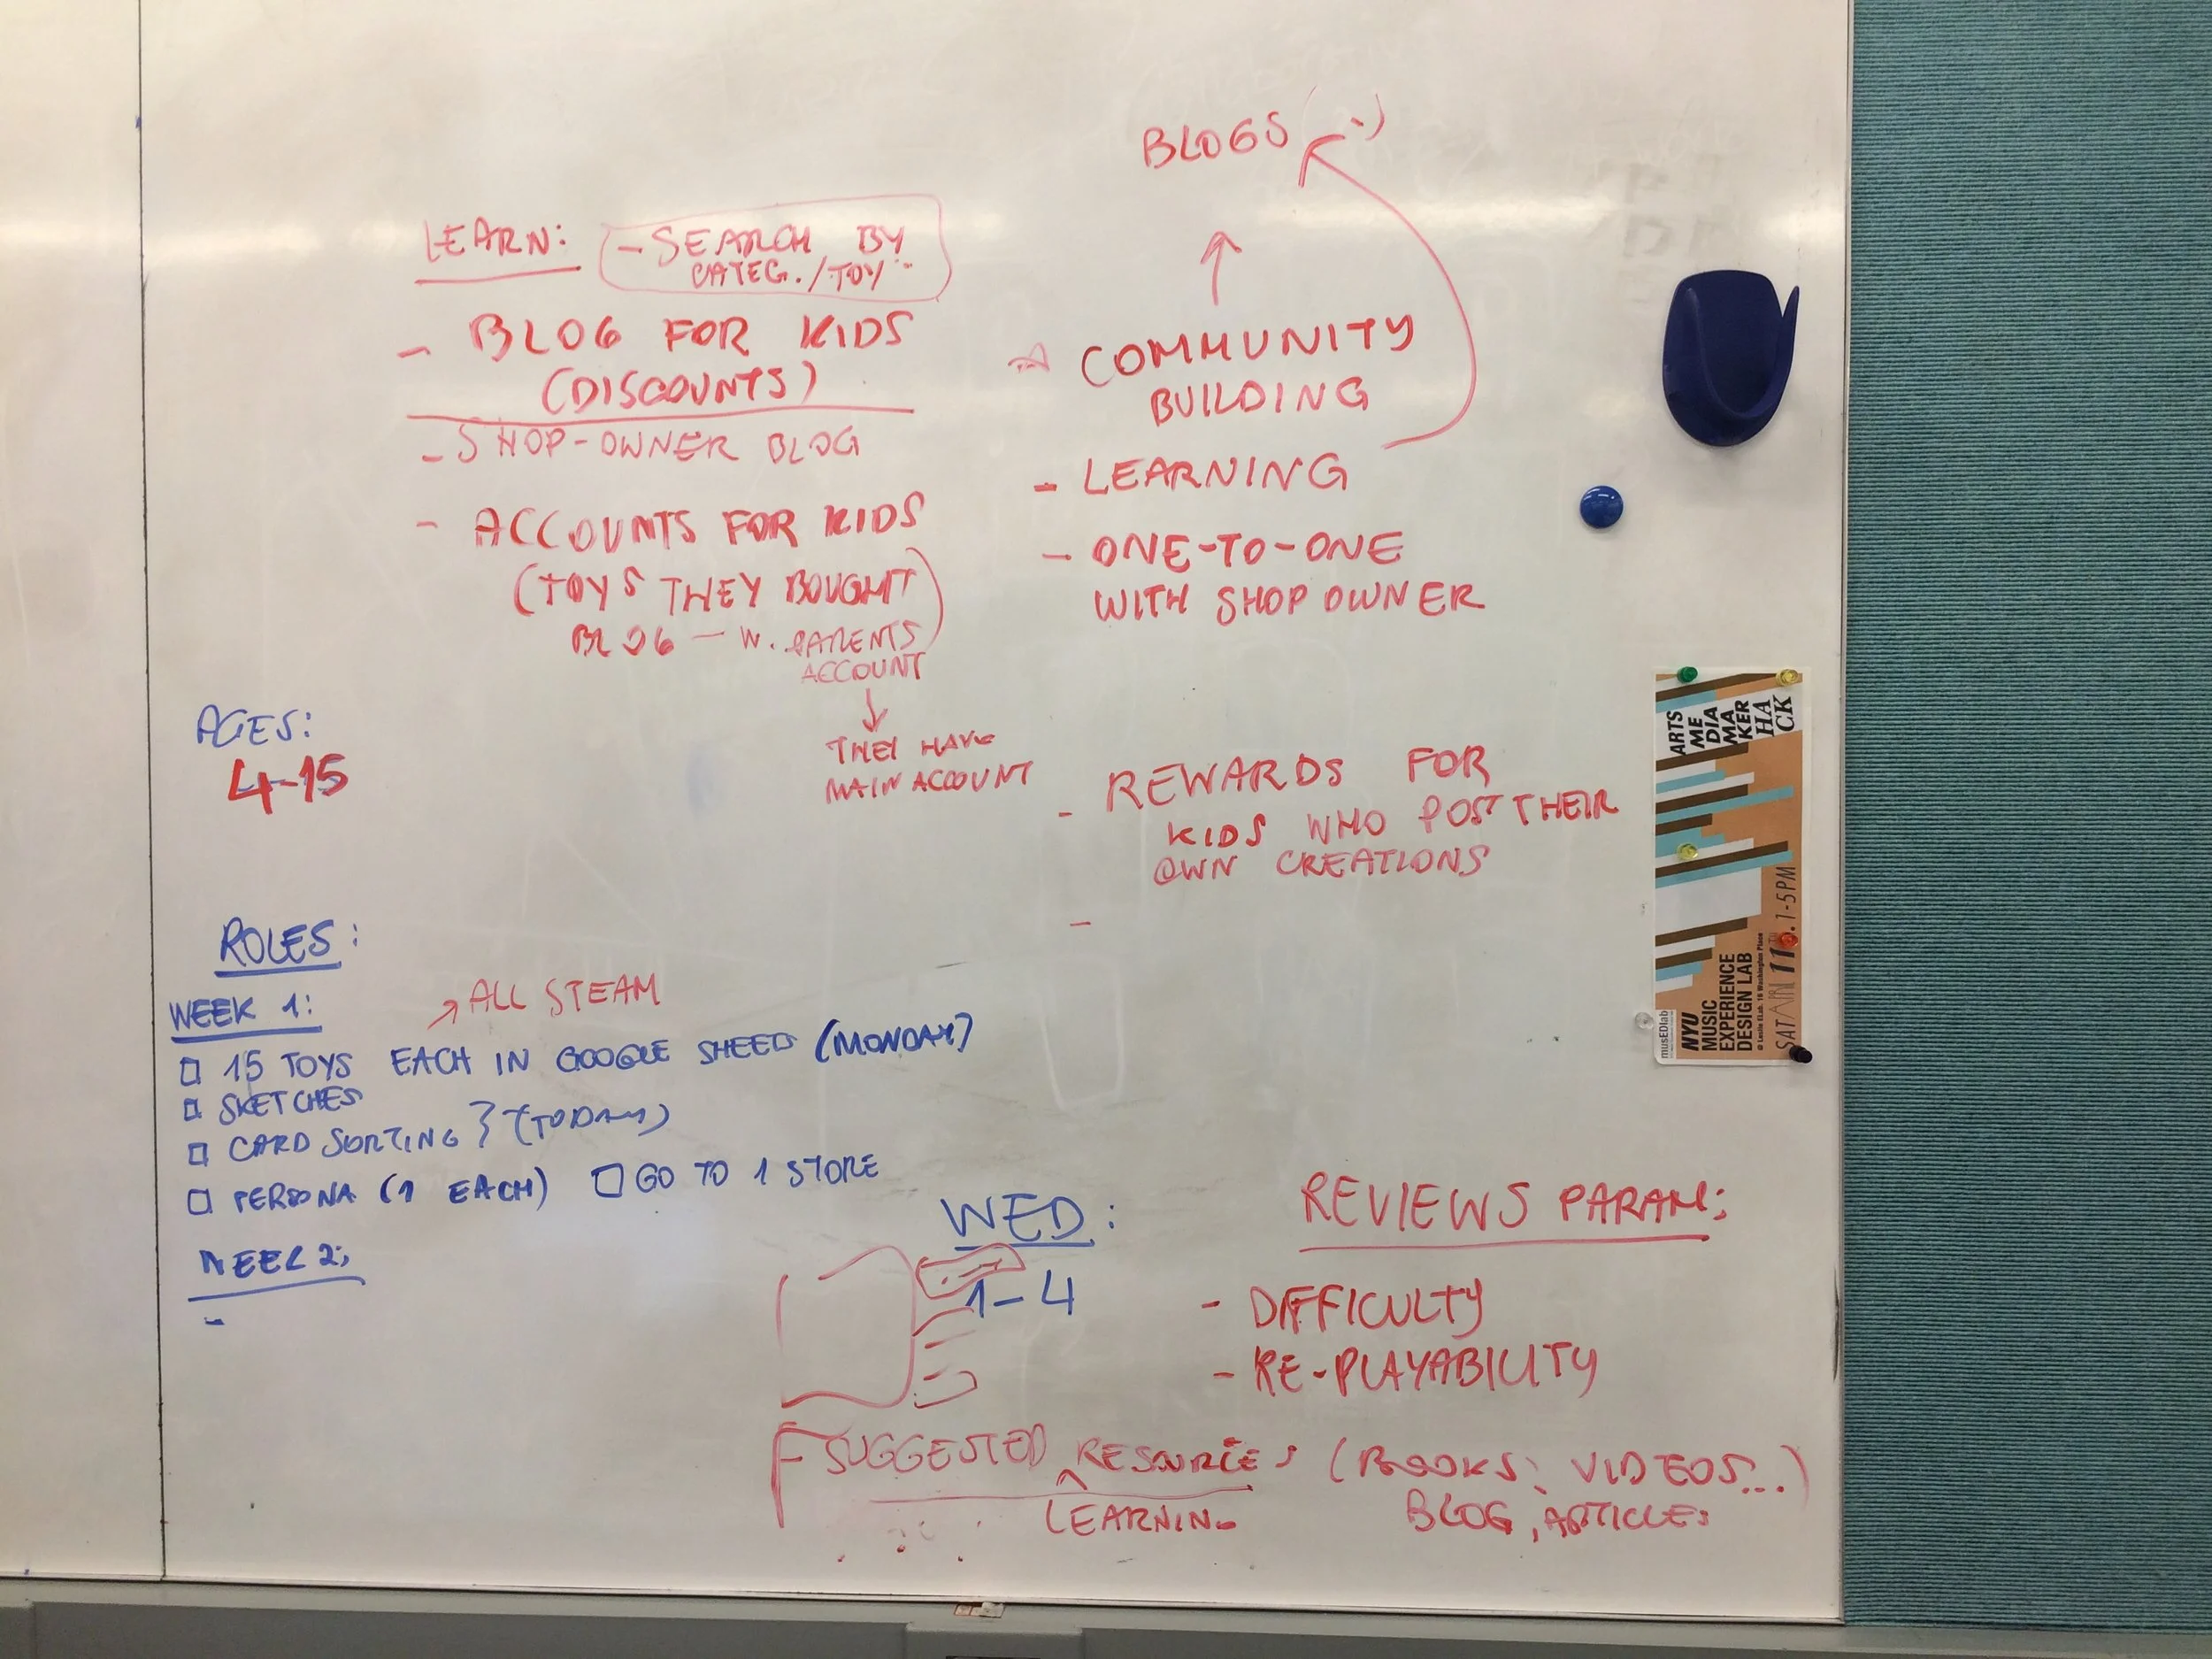 BLOGS
LEARN:
- SEARCH BY
CATEG./TOY
- BLOG FOR KIDS
(DISCOUNTS)
- SHOP-OWNER BLOG
- ACCOUNTS FOR KIDS
(TOYS THEY BOUGHT
BLOG - W. PARENTS)
ACCOUNT
↓
THEY HAVE
MAIN ACCOUNT
↑
COMMUNITY
BUILDING
- LEARNING
- ONE-TO-ONE
WITH SHOP OWNER
- REWARDS FOR
KIDS WHO POST THEIR
OWN CREATIONS
-
AGES:
4-15
ROLES:
WEEK 1:
↗ ALL STEAM
□ 15 TOYS EACH IN GOOGLE SHEED (MONDAY)
□ SKETCHES
□ CARD SORTING } (TODAY)
□ PERSONA (1 EACH) □ GO TO 1 STORE
WEEK 2:
-
WED:
1-4
REVIEWS PARAM:
- DIFFICULTY
- RE-PLAYABILITY
SUGGESTED ^ RESOURCES (BOOKS, VIDEOS...)
LEARNING
BLOG, ARTICLES
ARTS
ME
DIA
MA
KER
HA
CK
musEDlab
NYU
MUSIC
EXPERIENCE
DESIGN LAB
SAT APRIL 11TH. 1-5PM